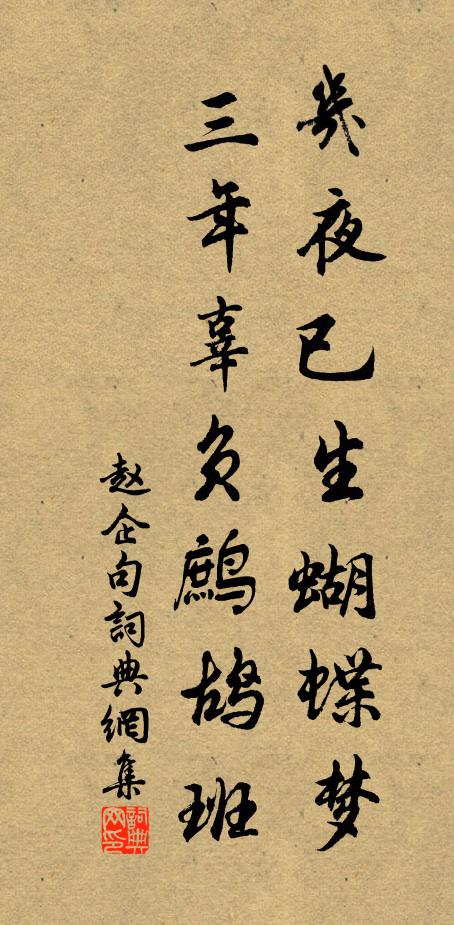 幾夜已生蝴蝶梦
三年辜负鹧鸪班
赵企句詞典網集
詞典網印